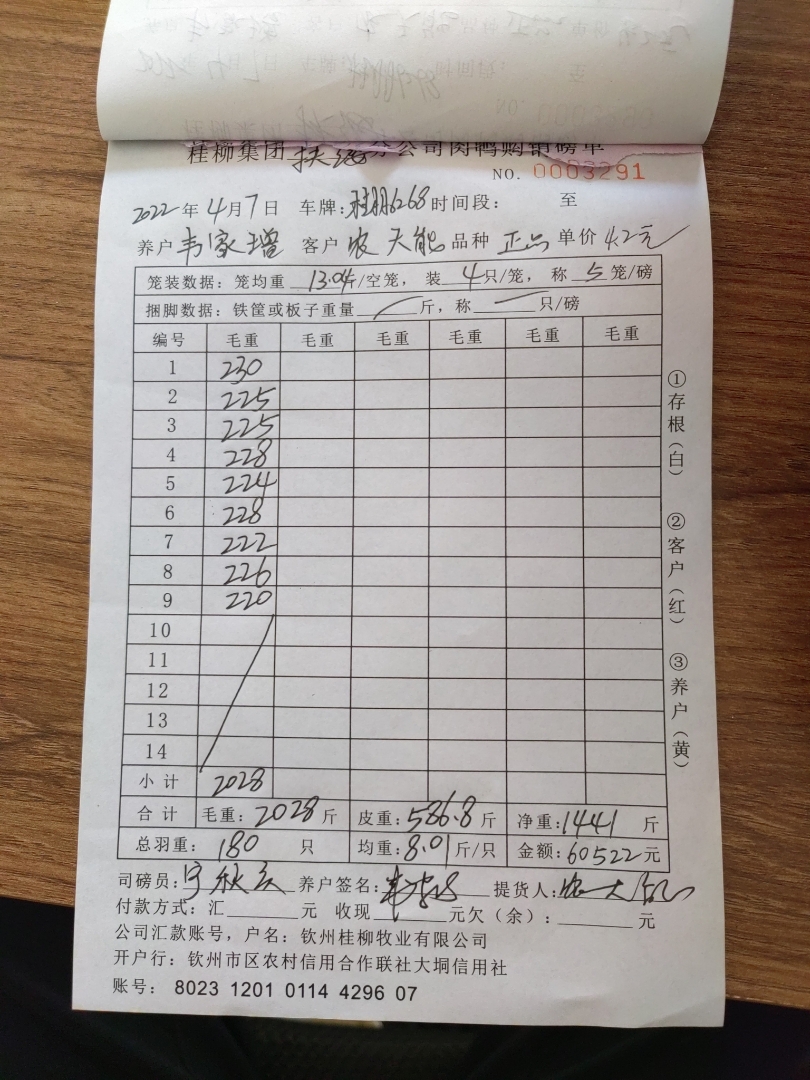 桂柳集团扶绥分公司肉鸭购销磅单
NO. 0003291
2022年4月7日 车牌: 桂 6268 时间段: 至
养户 韦家增 客户 农天能 品种 正品 单价 4.2元
笼装数据: 笼均重 13.04斤/空笼, 装 4只/笼, 称 5笼/磅
捆脚数据: 铁筐或板子重量 斤, 称 只/磅
编号 毛重 毛重 毛重 毛重 毛重 毛重
1 230
2 225
3 225
4 228
5 224
6 228
7 222
8 226
9 220
10
11
12
13
14
小计 2028
合计 毛重: 2028斤 皮重: 586.8斤 净重: 1441 斤
总羽重: 180 只 均重: 8.01斤/只 金额: 60522元
司磅员: 养户签名: 提货人:
付款方式: 汇 元 收现 元欠(余): 元
公司汇款账号, 户名: 钦州桂柳牧业有限公司
开户行: 钦州市区农村信用合作联社大垌信用社
账号: 8023 1201 0114 4296 07
①存根(白) ②客户(红) ③养户(黄)